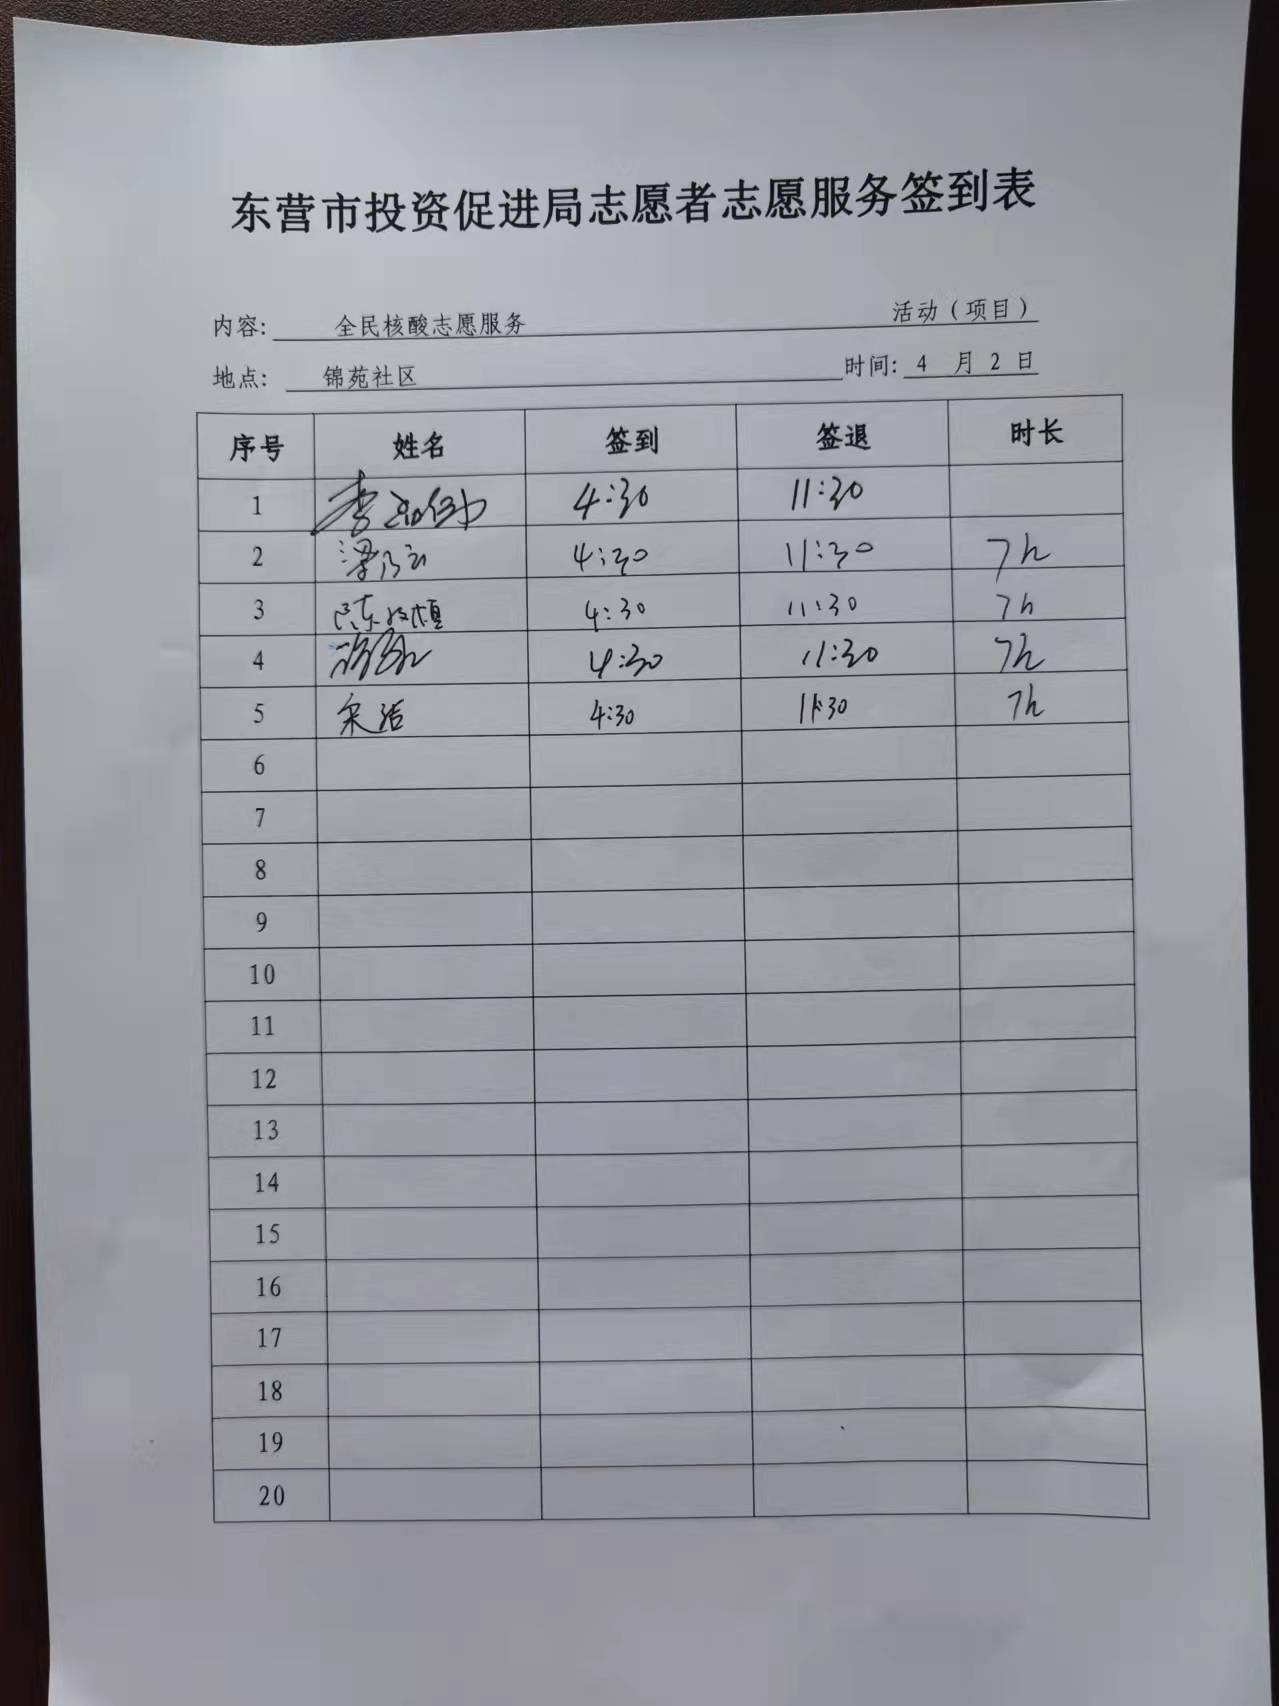 东营市投资促进局志愿者志愿服务签到表
内容: 全民核酸志愿服务 活动（项目）
地点: 锦苑社区 时间: 4 月 2 日
序号 姓名 签到 签退 时长
1 李 4:30 11:30
2 梁乃云 4:30 11:30 7h
3 陈 4:30 11:30 7h
4 4:30 11:30 7h
5 宋洁 4:30 11:30 7h
6
7
8
9
10
11
12
13
14
15
16
17
18
19
20